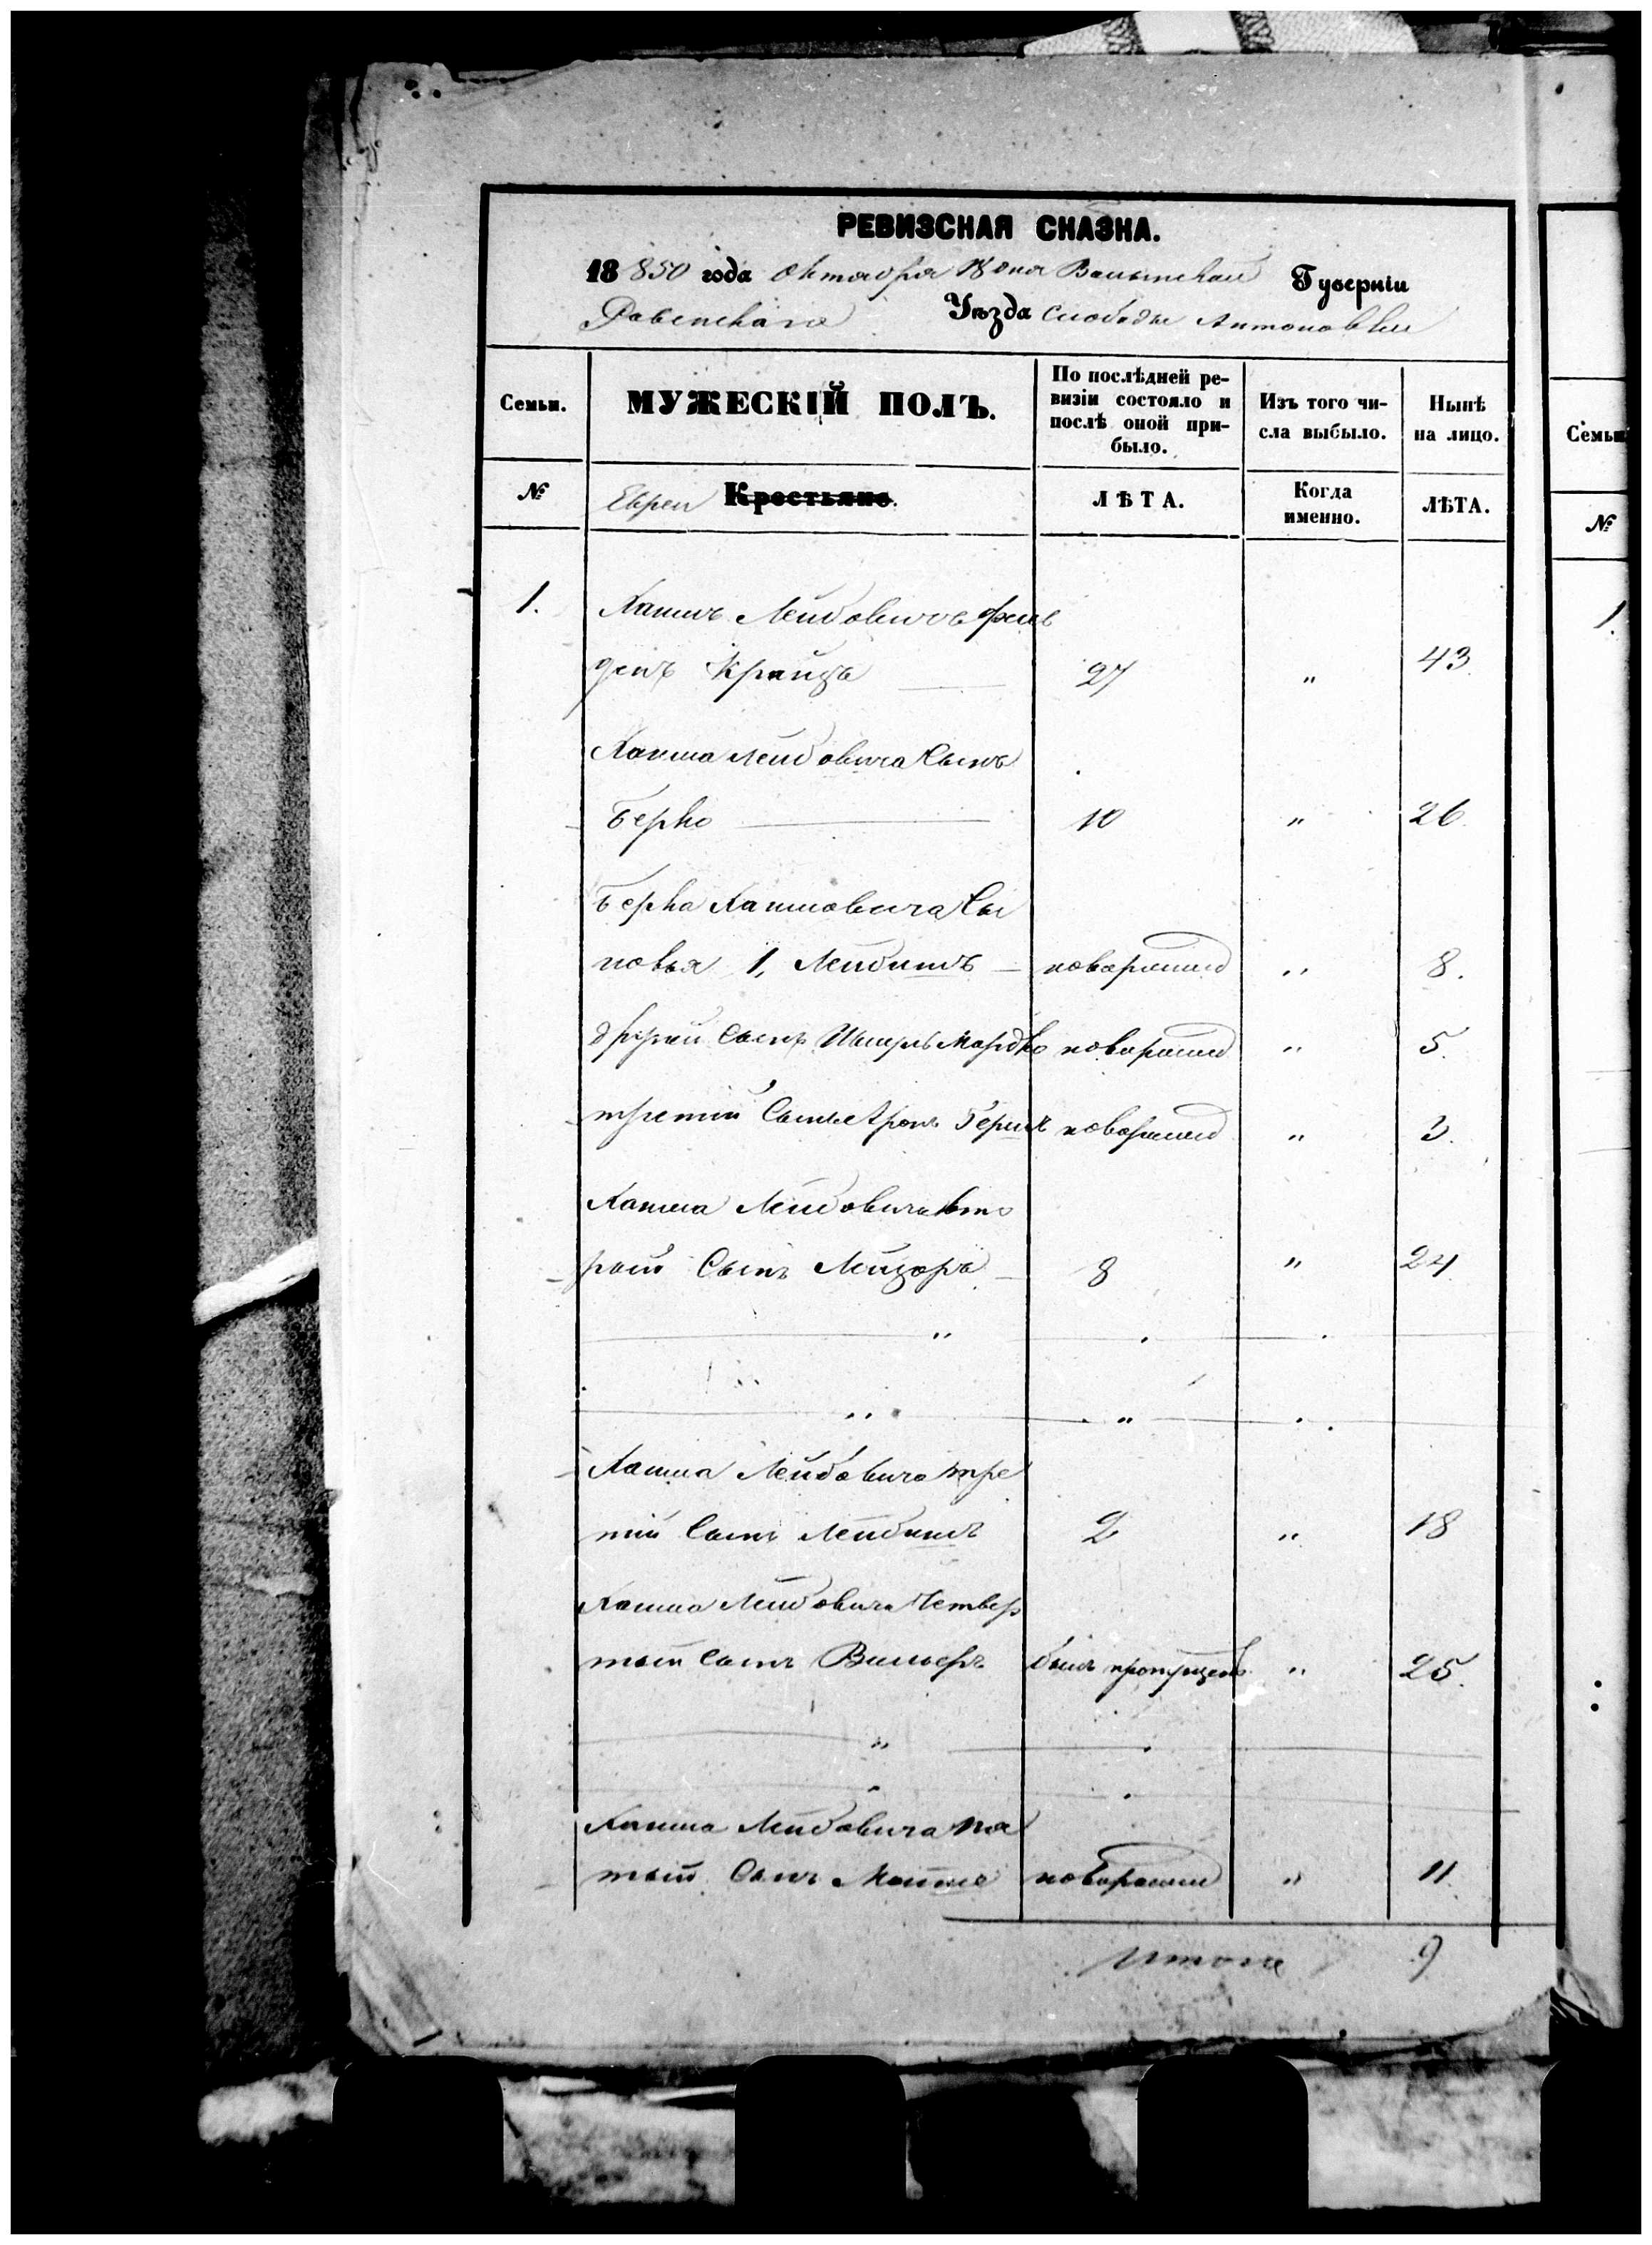 РЕВИЗСКАЯ СКАЗКА.
18 850 года Октября 18 дня Волынской Губерніи
Ровенскаго Уѣзда слободы Антоновки
Семьи. МУЖЕСКІЙ ПОЛЪ. По послѣдней ре-
визіи состояло и
послѣ оной при-
было. Изъ того чи-
сла выбыло. Нынѣ
на лицо.
Семьи
№ Евреи Крестьяне. ЛѢТА. Когда
именно. ЛѢТА.
№
1. Капшъ Лейбовичъ Фель
денъ Крайзъ 27 " 43
1.
Капша Лейбовича Сынъ
Берко 10 " 26
Берка Капшовича Сы
новья 1, Лейбишъ новорожд " 8.
другий Сынъ Мордко новорожд " 5.
третий Сынъ Аронъ Гершъ новорожд " 3.
Капша Лейбовича вто
рый Сынъ Лейзоръ 8 " 24
" "
" "
Капша Лейбовича тре
тий Сынъ Лейбишъ 2 " 18
Капша Лейбовича Четвер
тый Сынъ былъ пропущенъ " 25.
"
"
Капша Лейбовича пя
тый Сынъ новорожд " 11
Итого 9